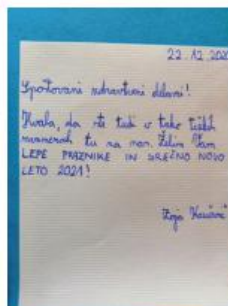 22.12.2020
Spoštovani zdravstveni delavci!
Hvala, da ste tudi v tako težkih
razmerah tu za nas. Želim Vam
LEPE PRAZNIKE IN SREČNO NOVO
LETO 2021!
Zoja